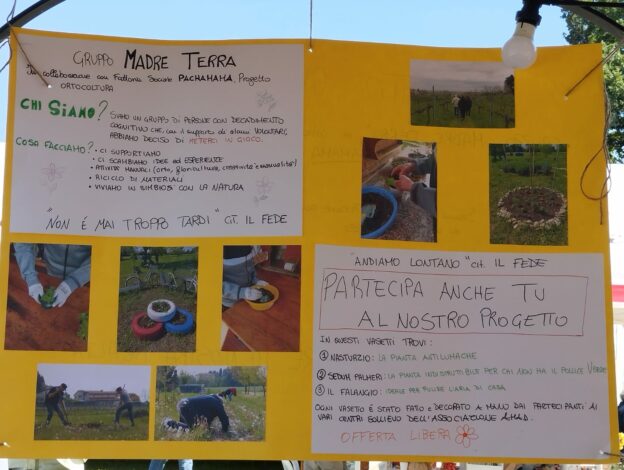 GRUPPO MADRE TERRA
In collaborazione con Fattoria Sociale PACHAMAMA, Progetto
ORTOCULTURA
CHI SIAMO? SIAMO UN GRUPPO DI PERSONE CON DECADIMENTO
COGNITIVO CHE, con il supporto di alcuni VOLONTARI,
ABBIAMO DECISO DI METERCI IN GIOCO.
COSA FACCIAMO? • CI SUPPORTIAMO
• CI SCAMBIAMO IDEE ed ESPERIENZE
• ATTIVITÀ MANUALI (orto, floricultura, creatività e manualità)
• RICICLO DI MATERIALI
• VIVIAMO IN SIMBIOSI CON LA NATURA
"NON É MAI TROPPO TARDI" CIT. IL FEDE
"ANDIAMO LONTANO" cit. IL FEDE
PARTECIPA ANCHE TU
AL NOSTRO PROGETTO
IN QUESTI VASETTI TROVI:
① NASTURZIO: LA PIANTA ANTILUMACHE
② SEDUM PALMERI: LA PIANTA INDISTRUTTIBILE PER CHI NON HA IL POLLICE VERDE
③ IL FALANGIO: IDEALE PER PULIRE L'ARIA DI CASA
OGNI VASETTO É STATO FATTO e DECORATO A MANO DAI PARTECIPANTI AI
VARI CENTRI SOLLIEVO DELL'ASSOCIAZIONE AMAD.
OFFERTA LIBERA